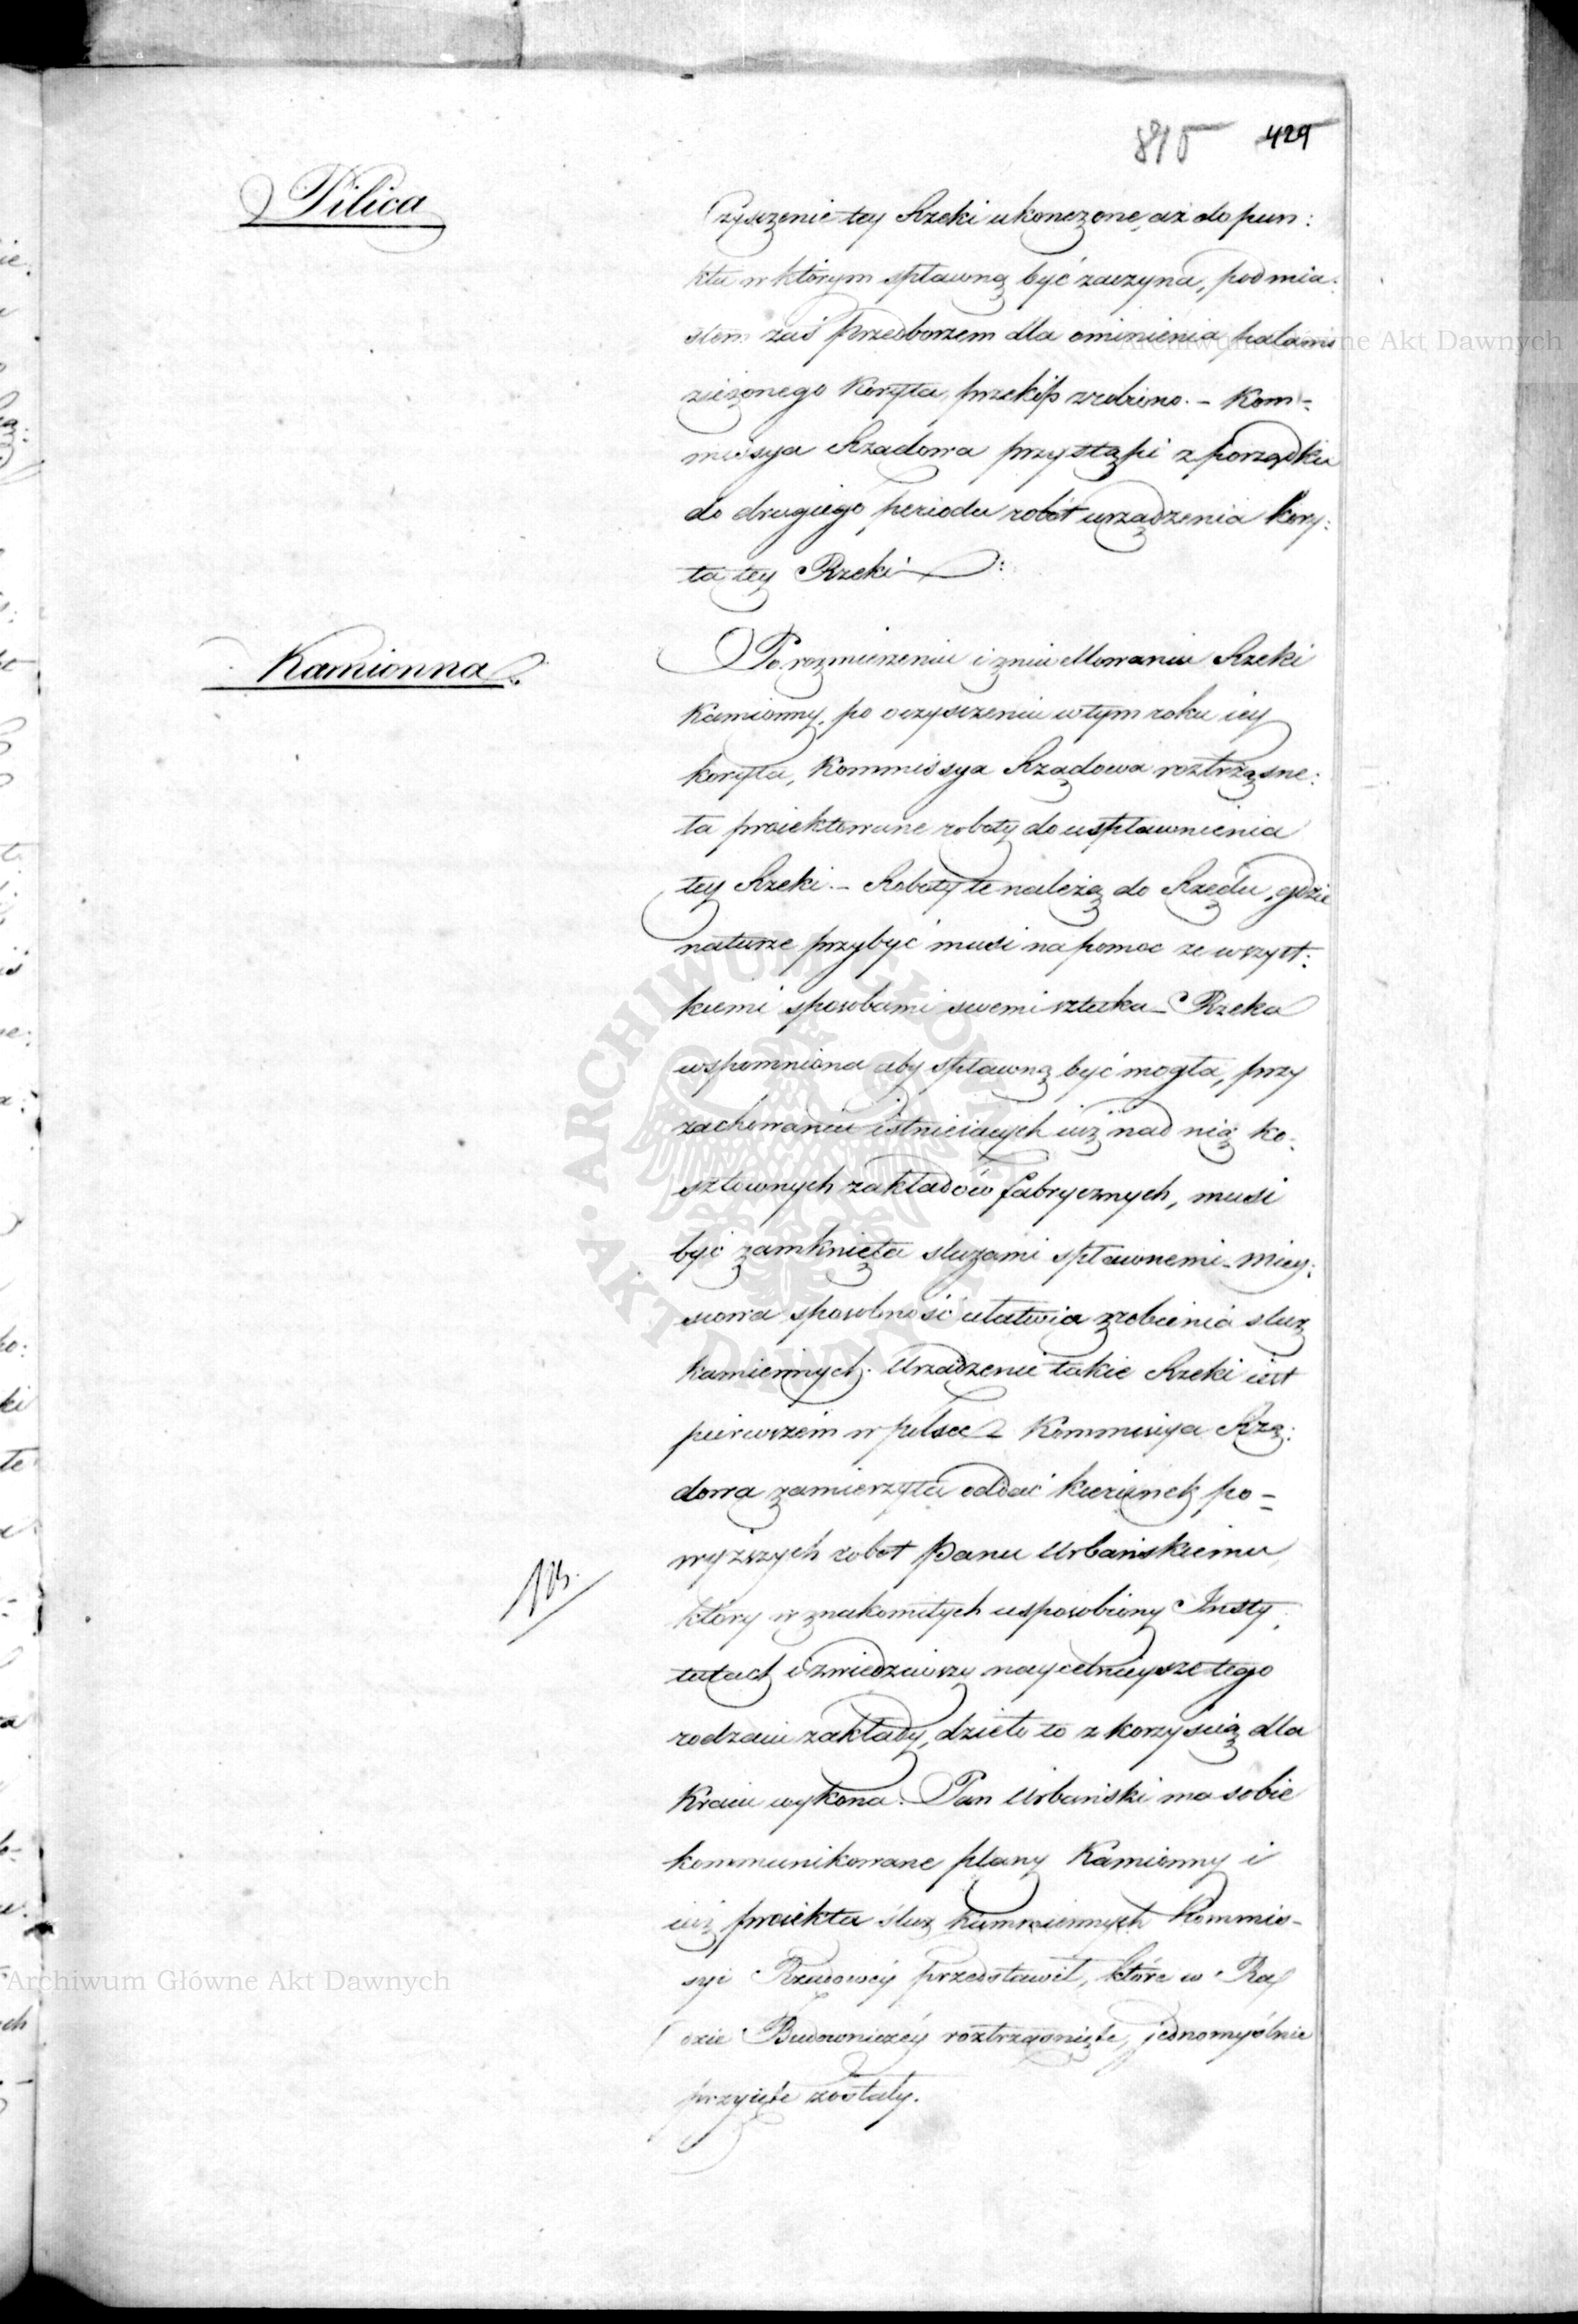 815 429
Pilica
Czyszczenie tey Rzeki ukończone, aż do pun:
ktu w którym spławną być zaczyna, pod mia:
stem zaś Przedborzem dla ominienia
zieżonego Koryta, przekop zrobiono. – Kom-
missya Rządowa przystąpi z porządku
do drugiego periodu robót urządzenia kory:
ta tey Rzeki
Kamionna
Po rozmierzeniu i zniwellowaniu Rzeki
Kamionny, po oczyszczeniu w tym roku iey
koryta, Kommissya Rządowa roztrząsne:
ła proiektowane roboty do uspławnienia
tey Rzeki. – Roboty te należą do Rzędu, gdzie
naturze przybyć musi na pomoc ze wszyst:
kiemi sposobami swemi sztuka – Rzeka
wspomniona aby spławną być mogła, przy
zachowaniu istnieiących iuż nad nią ko:
sztownych zakładów fabrycznych, musi
być zamknięta sluzami spławnemi – Miey:
scowa sposobność ułatwia zrobienia sluz
kamiennych. Urządzenie takie Rzeki iest
pierwszem w Polsce Kommissya Rzą:
dowa zamierzyła oddać kierunek po=
wyższych robot Panu Urbańskiemu
NB.
który w znakomitych usposobiony Insty:
tutach i zwiedzaiwszy naycelnieysze tego
rodzaiu zakłady, dzieło to z korzyścią dla
Kraiu wykona. Pan Urbański ma sobie
kommunikowane plany Kamionny i
iuż proiekta śluz kamiennych Kommis-
syi Rządowéy przedstawił, które w Ra
dzie Budowniczéy roztrząśnięte, jednomyślnie
przyięte zostały.
Archiwum Główne Akt Dawnych
ARCHIWUM GŁÓWNE AKT DAWNYCH
Archiwum Główne Akt Dawnych